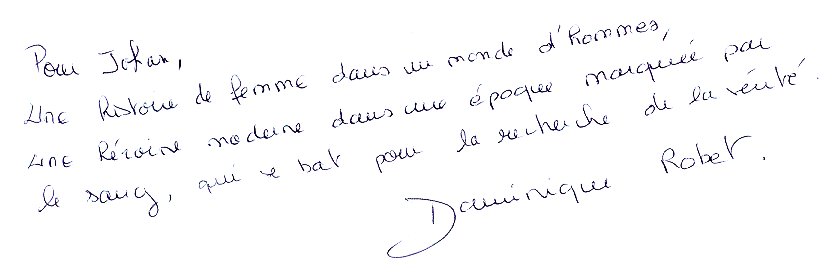 Pour Johan,
Une histoire de femme dans un monde d'hommes,
une héroïne moderne dans une époque marquée par
le sang, qui se bat pour la recherche de la vérité.
Dominique Robet.